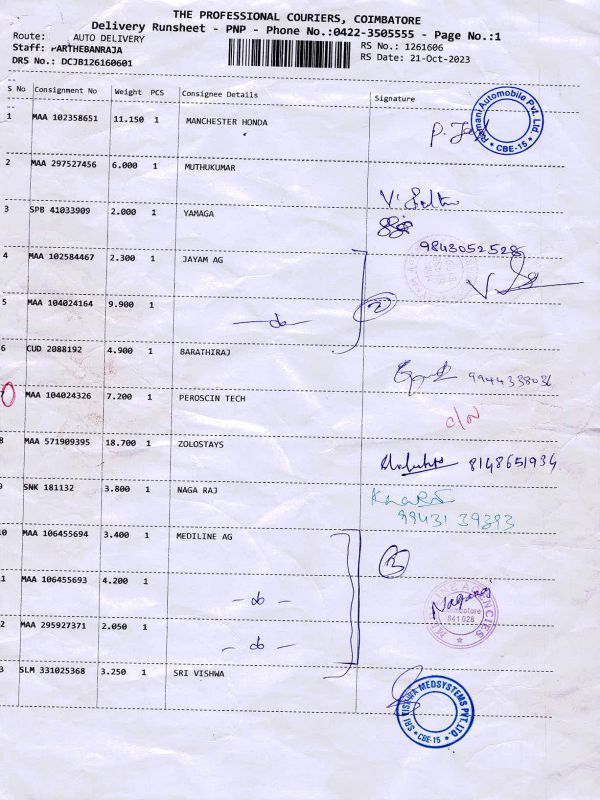 THE PROFESSIONAL COURIERS, COIMBATORE
Delivery Runsheet - PNP - Phone No.:0422-3505555 - Page No.:1
Route: AUTO DELIVERY
Staff: PARTHEBANRAJA
RS No.: 1261606
DRS No.: DCJB126160601
RS Date: 21-Oct-2023
S No Consignment No Weight PCS Consignee Details Signature
1 MAA 102358651 11.150 1 MANCHESTER HONDA
Ramani Automobile Pvt. Ltd. * CBE-15 *
2 MAA 297527456 6.000 1 MUTHUKUMAR
3 SPB 41033909 2.000 1 YAMAGA
9843052528
4 MAA 102584467 2.300 1 JAYAM AG
5 MAA 104024164 9.900 1 — do — 2
6 CUD 2088192 4.900 1 BARATHIRAJ 9944338036
7 MAA 104024326 7.200 1 PEROSCIN TECH
8 MAA 571909395 18.700 1 ZOLOSTAYS 8148651934
9 SNK 181132 3.800 1 NAGA RAJ
99431 39393
10 MAA 106455694 3.400 1 MEDILINE AG 3
11 MAA 106455693 4.200 1 - do -
Nagaraj
AGENCIES
641 028
12 MAA 295927371 2.050 1 - do -
13 SLM 331025368 3.250 1 SRI VISHWA
SRI VISHWA MEDSYSTEMS PVT. LTD. * CBE-15 *